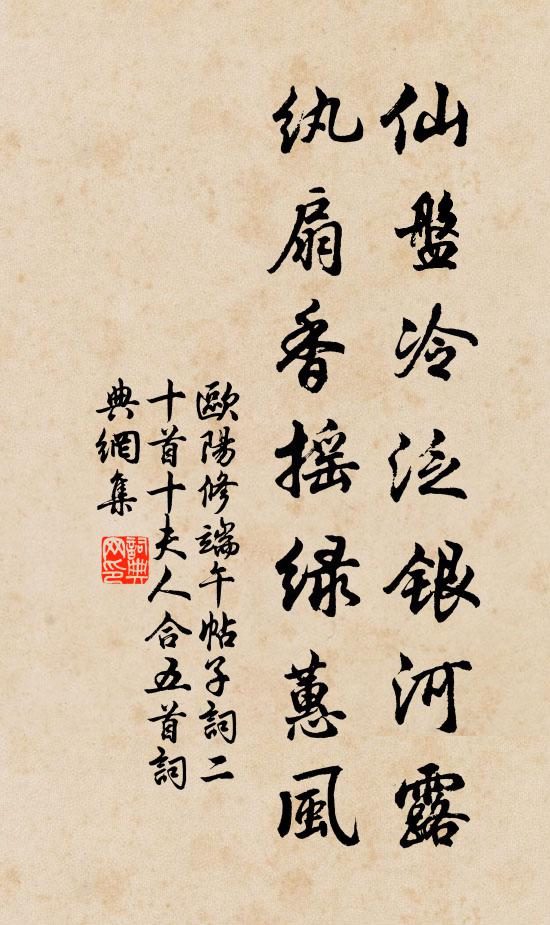 仙盤冷泛銀河露
紈扇香搖綠蕙風
歐陽修端午帖子詞二
十首十夫人合五首詞
典網集
詞典網印